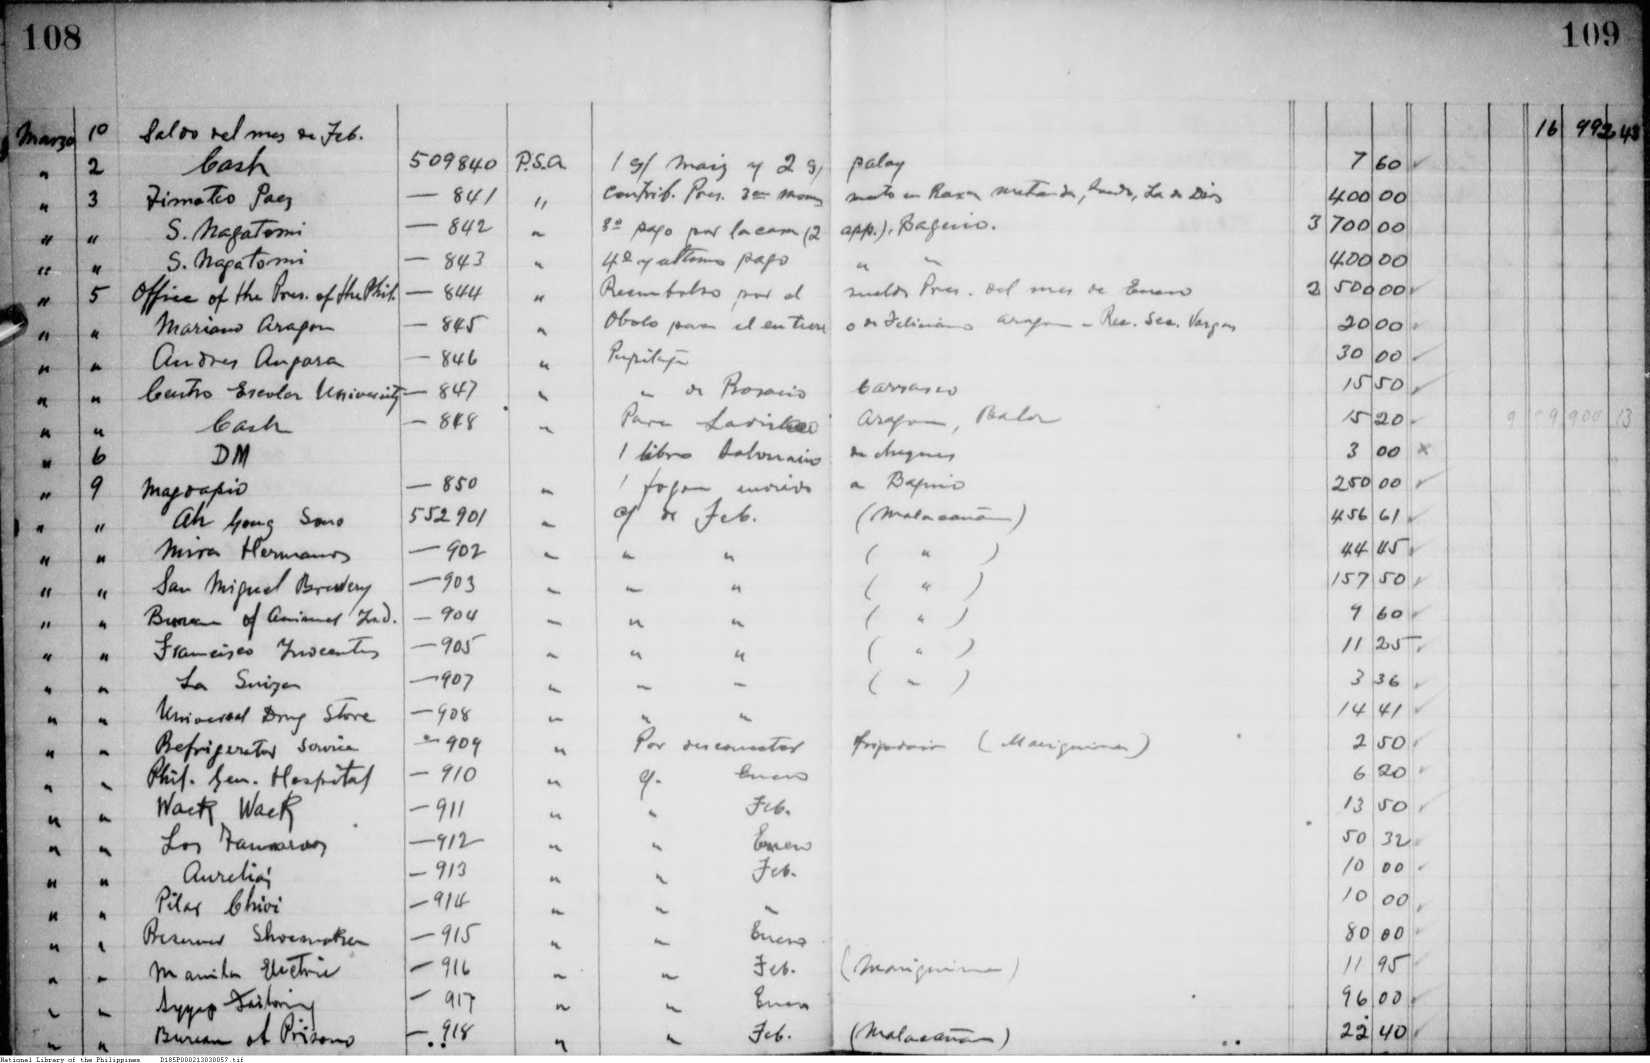 108 109
Marzo 10 Saldo del mes de Feb. 16 992 43
" 2 Cash 509840 P.S.A. 1 s/ maiz y 2 s/ palay 7 60
" 3 Timoteo Paez — 841 " Contrib. Pres. en 400 00
" " S. Nagatomi — 842 " 3º pago por la casa (2 app.), Baguio. 3 700 00
" " S. Nagatomi — 843 " 4º y ultimo pago " " 400 00
" 5 Office of the Pres. of the Phil. — 844 " Reembolso por el sueldo Pres. del mes de Enero 2 500 00
" " Mariano Aragon — 845 " Obolo para el entierro de Feliciano Aragon - Rec. Sec. Vargas 20 00
" " Andres Angara — 846 " Pupilaje 30 00
" " Centro Escolar University — 847 " " de Rosario Carrasco 15 50
" " Cash — 848 " Para Ladislao Aragon, Baler 15 20
" 6 DM 1 libro talonario de cheques 3 00 x
" 9 Magdapio — 850 " 1 fogon enviado a Baguio 250 00
" " Ah Gong Sons 552901 " c/ de Feb. (Malacañan) 456 61
" " Mira Hermanos — 902 " " " ( " ) 44 45
" " San Miguel Brewery — 903 " " " ( " ) 157 50
" " Bureau of Animal Ind. — 904 " " " ( " ) 9 60
" " Francisco Inocentes — 905 " " " ( " ) 11 25
" " La Suiza — 907 " " " ( " ) 3 36
" " Universal Drug Store — 908 " " " 14 41
" " Refrigerator Service — 909 " Por desconectar frigidaire (Mariquina) 2 50
" " Phil. Gen. Hospital — 910 " c/. Enero 6 20
" " Wack Wack — 911 " " Feb. 13 50
" " Los — 912 " " Enero 50 32
" " — 913 " " Feb. 10 00
" " Pilar — 914 " " " 10 00
" " Shoemaker — 915 " " Enero 80 00
" " Manila Electric — 916 " " Feb. (Mariquina) 11 95
" " Ayyap Tailoring — 917 " " Enero 96 00
" " Bureau of Prisons — 918 " " Feb. (Malacañan) 22 40
National Library of the Philippines D185P000213030057.tif